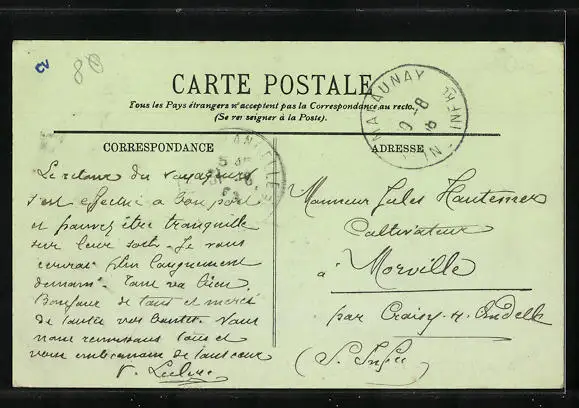 cv 80
CARTE POSTALE
Tous les Pays étrangers n'acceptent pas la Correspondance au recto.
(Se renseigner à la Poste).
MALAUNAY
CORRESPONDANCE
ADRESSE
Le retour du voyageur
s'est effectué à bon port
et pouvez être tranquille
sur leur sort. Je vous
écrirai plus longuement
demain. Tout va bien.
Bonjour de tous et merci
de toutes vos bontés. Nous
vous remercions tous et
vous embrassons de tout cœur
Monsieur Jules Hautemer
Cultivateur
à Morville
par Croisy s. Andelle
(S. Infre)